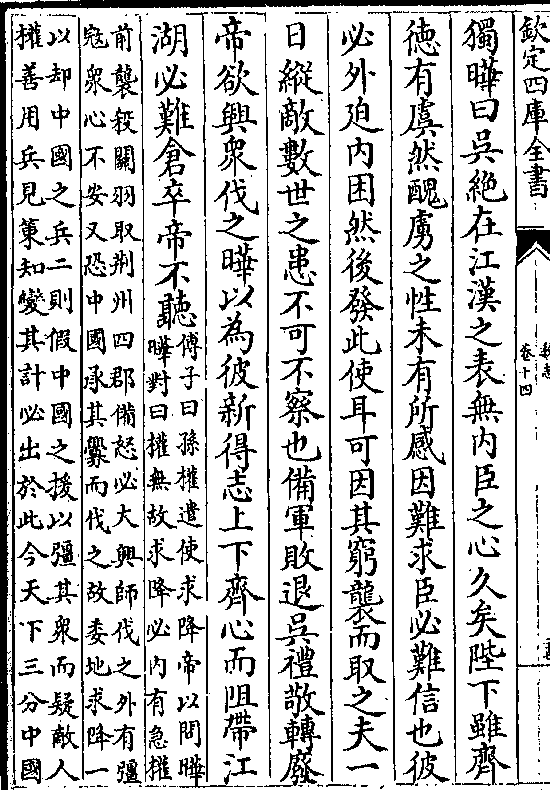 欽定四庫全書
卷十四
獨曄曰吳絶在江漢之表無内臣之心久矣陛下雖齊
徳有虞然醜虜之性未有所感因難求臣必難信也彼
必外迫内困然後發此使耳可因其窮襲而取之夫一
日縱敵數世之患不可不察也備軍敗退吳禮敬轉廢
帝欲興衆伐之曄以為彼新得志上下齊心而阻帶江
湖必難倉卒帝不聽
傅子曰孫權遣使求降帝以問曄
曄對曰權無故求降必内有急權
前襲殺關羽取荆州四郡備怒必大興師伐之外有彊
宼衆心不安又恐中國承其釁而伐之故委地求降一
以却中國之兵二則假中國之援以彊其衆而疑敵人
權善用兵見策知變其計必出於此今天下三分中國